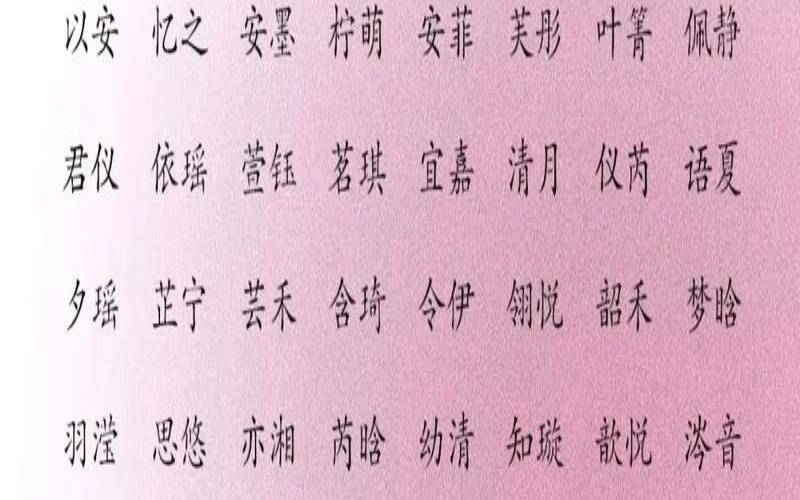 以安 忆之 安墨 柠萌 安菲 芙彤 叶箐 佩静
君仪 依瑶 萱钰 茗琪 宜嘉 清月 仪芮 语夏
夕瑶 芷宁 芸禾 含琦 令伊 翎悦 韶禾 梦晗
羽滢 思悠 亦湘 芮晗 幼清 知璇 歆悦 涔音